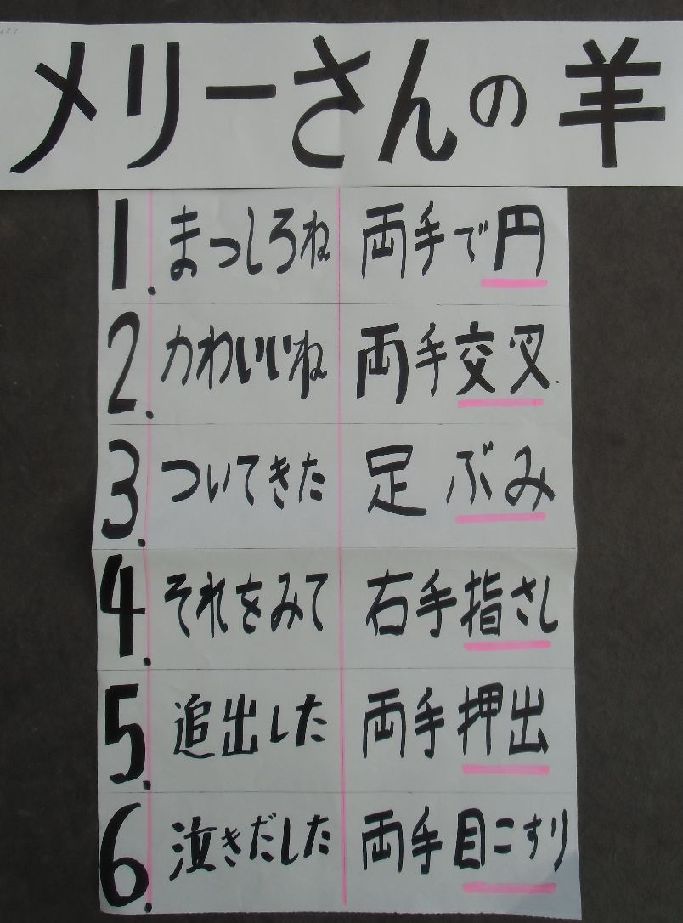 メリーさんの羊
1. まっしろね 両手で円
2. かわいいね 両手交叉
3. ついてきた 足ぶみ
4. それをみて 右手指さし
5. 追出した 両手押出
6. 泣きだした 両手目こすり